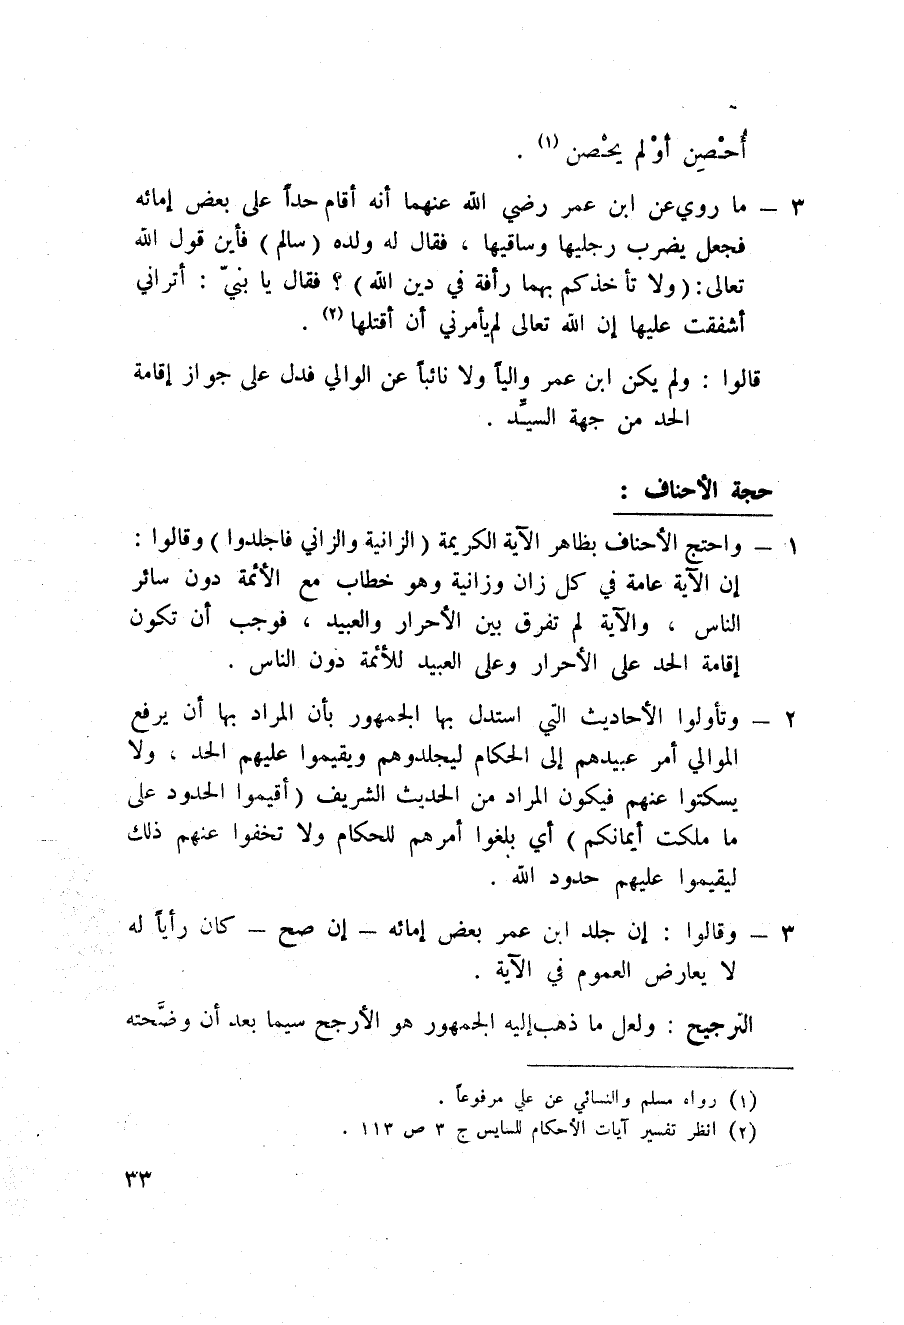 أُحْصِن أوْ لم يحْصن (١) .
٣ – ما روي عن ابن عمر رضي الله عنهما أنه أقام حداً على بعض إمائه
فجعل يضرب رجليها وساقيها ، فقال له ولده ( سالم ) فأين قول الله
تعالى : ( ولا تأخذكم بهما رأفة في دين الله ) ؟ فقال يا بنيّ : أتراني
أشفقت عليها إن الله تعالى لم يأمرني أن أقتلها (٢) .
قالوا : ولم يكن ابن عمر والياً ولا نائباً عن الوالي فدل على جواز إقامة
الحد من جهة السيِّد .
حجة الأحناف :
١ – واحتج الأحناف بظاهر الآية الكريمة ( الزانية والزاني فاجلدوا ) وقالوا :
إن الآية عامة في كل زان وزانية وهو خطاب مع الأئمة دون سائر
الناس ، والآية لم تفرق بين الأحرار والعبيد ، فوجب أن تكون
إقامة الحد على الأحرار وعلى العبيد للأئمة دون الناس .
٢ – وتأولوا الأحاديث التي استدل بها الجمهور بأن المراد بها أن يرفع
الموالي أمر عبيدهم إلى الحكام ليجلدوهم ويقيموا عليهم الحد ، ولا
يسكتوا عنهم فيكون المراد من الحديث الشريف ( أقيموا الحدود على
ما ملكت أيمانكم ) أي بلغوا أمرهم للحكام ولا تخفوا عنهم ذلك
ليقيموا عليهم حدود الله .
٣ – وقالوا : إن جلد ابن عمر بعض إمائه – إن صح – كان رأياً له
لا يعارض العموم في الآية .
الترجيح : ولعل ما ذهب إليه الجمهور هو الأرجح سيما بعد أن وضَّحته
(١) رواه مسلم والنسائي عن علي مرفوعاً .
(٢) انظر تفسير آيات الأحكام للسايس ج ٣ ص ١١٣ .
٣٣